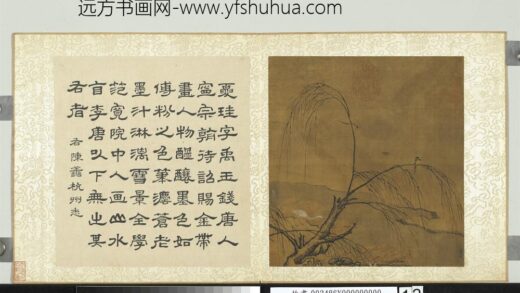 远方书画网-www.yfshuhua.com
夏珪字禹玉錢唐人
寧宗朝待詔賜金帶
畫人物醞釀墨色如
傅粉之色筆濃蒼老
墨汁淋漓雪景全學
范寬院中人画山水
自李唐以下無出其
右者
右陳善杭州志